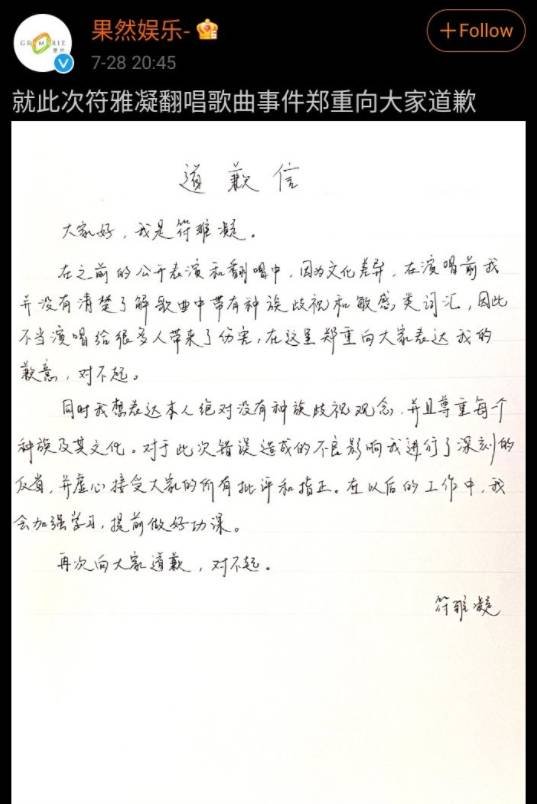 果然娱乐-
7-28 20:45
+Follow
就此次符雅凝翻唱歌曲事件郑重向大家道歉
道歉信
大家好，我是符雅凝。
在之前的公开表演和翻唱中，因为文化差异，在演唱前我
并没有清楚了解歌曲中带有种族歧视和敏感类词汇，因此
不当演唱给很多人带来了伤害，在这里郑重向大家表达我的
歉意，对不起。
同时我想表达本人绝对没有种族歧视观念，并且尊重每个
种族及其文化。对于此次错误造成的不良影响我进行了深刻的
反省，并虚心接受大家的所有批评和指正。在以后的工作中，我
会加强学习，提前做好功课。
再次向大家道歉，对不起。
符雅凝